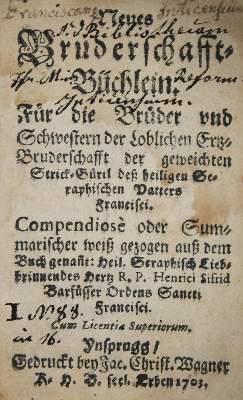 Franciscan
Neues
ad Bibliothecam
Bruderschafft-
Büchlein.
Reform
Für die Brüder vnd
Schwestern der Loblichen Ertz-
Bruderschafft der geweichten
Strick-Gürtl deß heiligen Se-
raphischen Vatters
Francisci.
Compendiosè oder Sum-
marischer weiß gezogen auß dem
Buch genañt: Heil. Seraphisch Lieb-
brinnendes Hertz R. P. Henrici Sifrid
Barfüsser Ordens Sancti
Francisci.
I N 88.
Cum Licentia Superiorum.
in 16.
Ynsprugg!
Gedruckt bey Jac. Christ. Wagner
seel. Erben 1703.